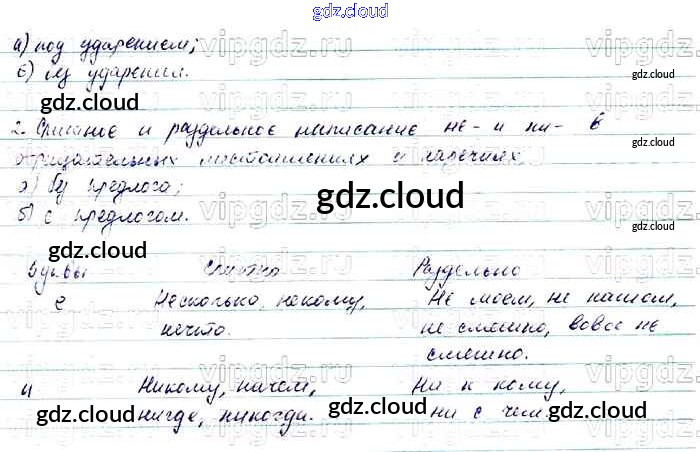 gdz.cloud
а) под ударением;
б) без ударения.
gdz.cloud
gdz.cloud
2. Слитное и раздельное написание не- и ни- в
отрицательных местоимениях и наречиях
а) без предлога;
б) с предлогом.
gdz.cloud
gdz.cloud
gdz.cloud
Буквы Слитно Раздельно
е Несколько, некому, Не моем, не нашем,
нечто. не смешно, вовсе не
смешно.
и Никому, ничем, Ни к кому,
нигде, никогда. ни с чем
gdz.cloud
gdz.cloud
gdz.cloud
vipgdz.ru